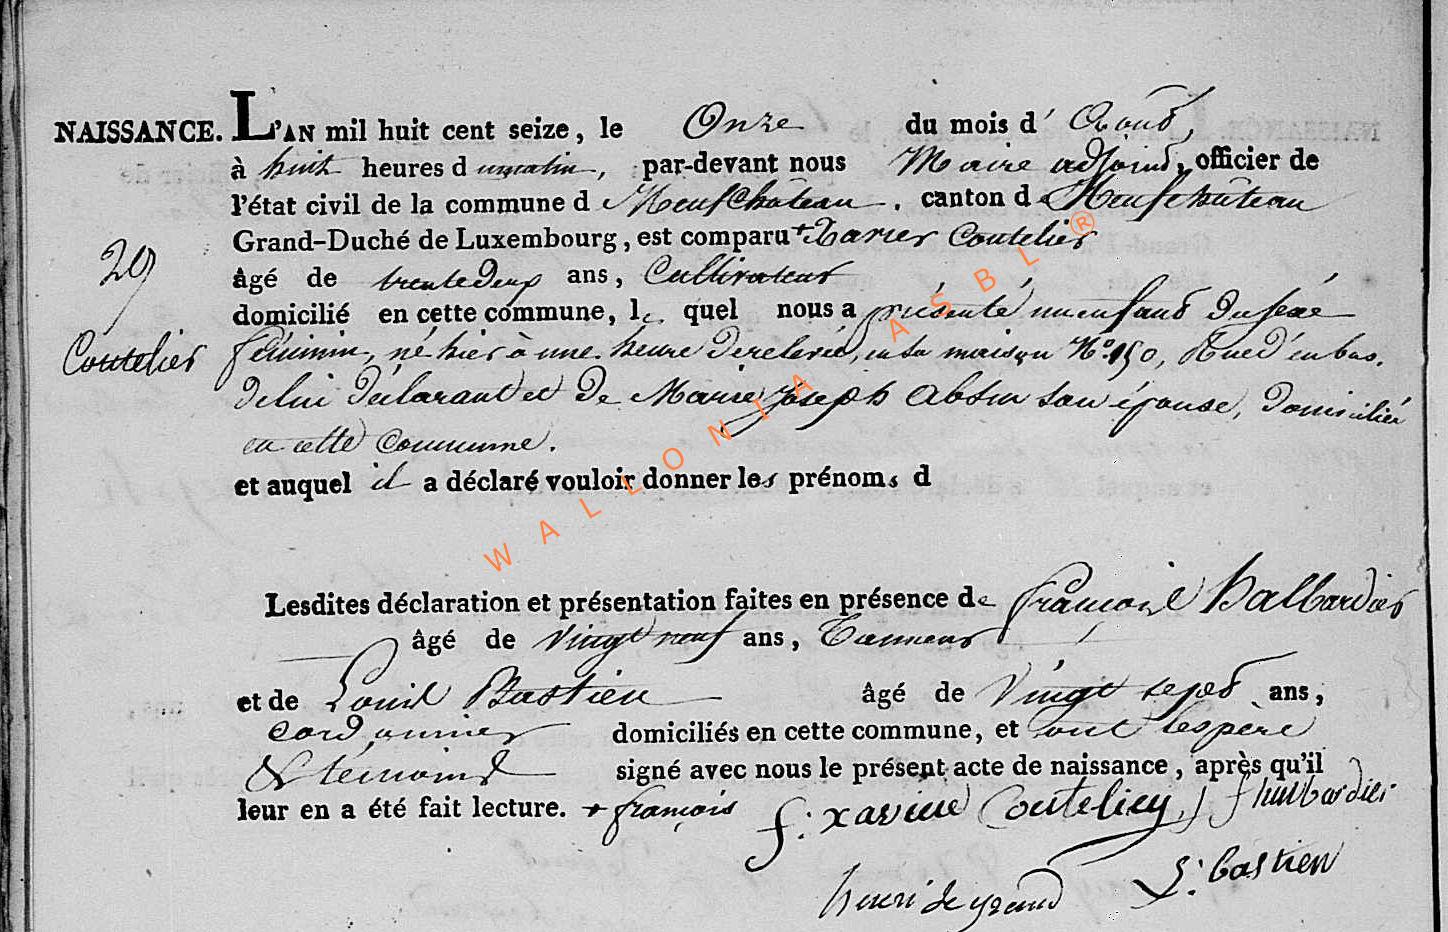 NAISSANCE. L'AN mil huit cent seize, le Onze du mois d' Aoust,
à huit heures d umatin, par-devant nous Maire adjoint, officier de
l'état civil de la commune d e Neufchâteau, canton d e Neufchâteau
Grand-Duché de Luxembourg, est comparu + Xavier Coutelier
29
âgé de trente deux ans, Cultivateur
domicilié en cette commune, le quel nous a présenté un enfant du sexe
Coutelier
féminin, né hier à une heure de relevée, en sa maison N.º 150, Rue d'en bas,
de lui déclarant et de Marie Joseph son épouse, domiciliés
en cette commune.
et auquel il a déclaré vouloir donner les prénoms d
Lesdites déclaration et présentation faites en présence de françois Halbardier
âgé de vingt neuf ans, Tanneur
et de Louis Bastien âgé de vingt sept ans,
cordonnier domiciliés en cette commune, et ont les père
& temoins signé avec nous le présent acte de naissance, après qu'il
leur en a été fait lecture. + françois f: xavier Coutelier f halbardier
L: bastien
henri
WALLONIA ASBL ®